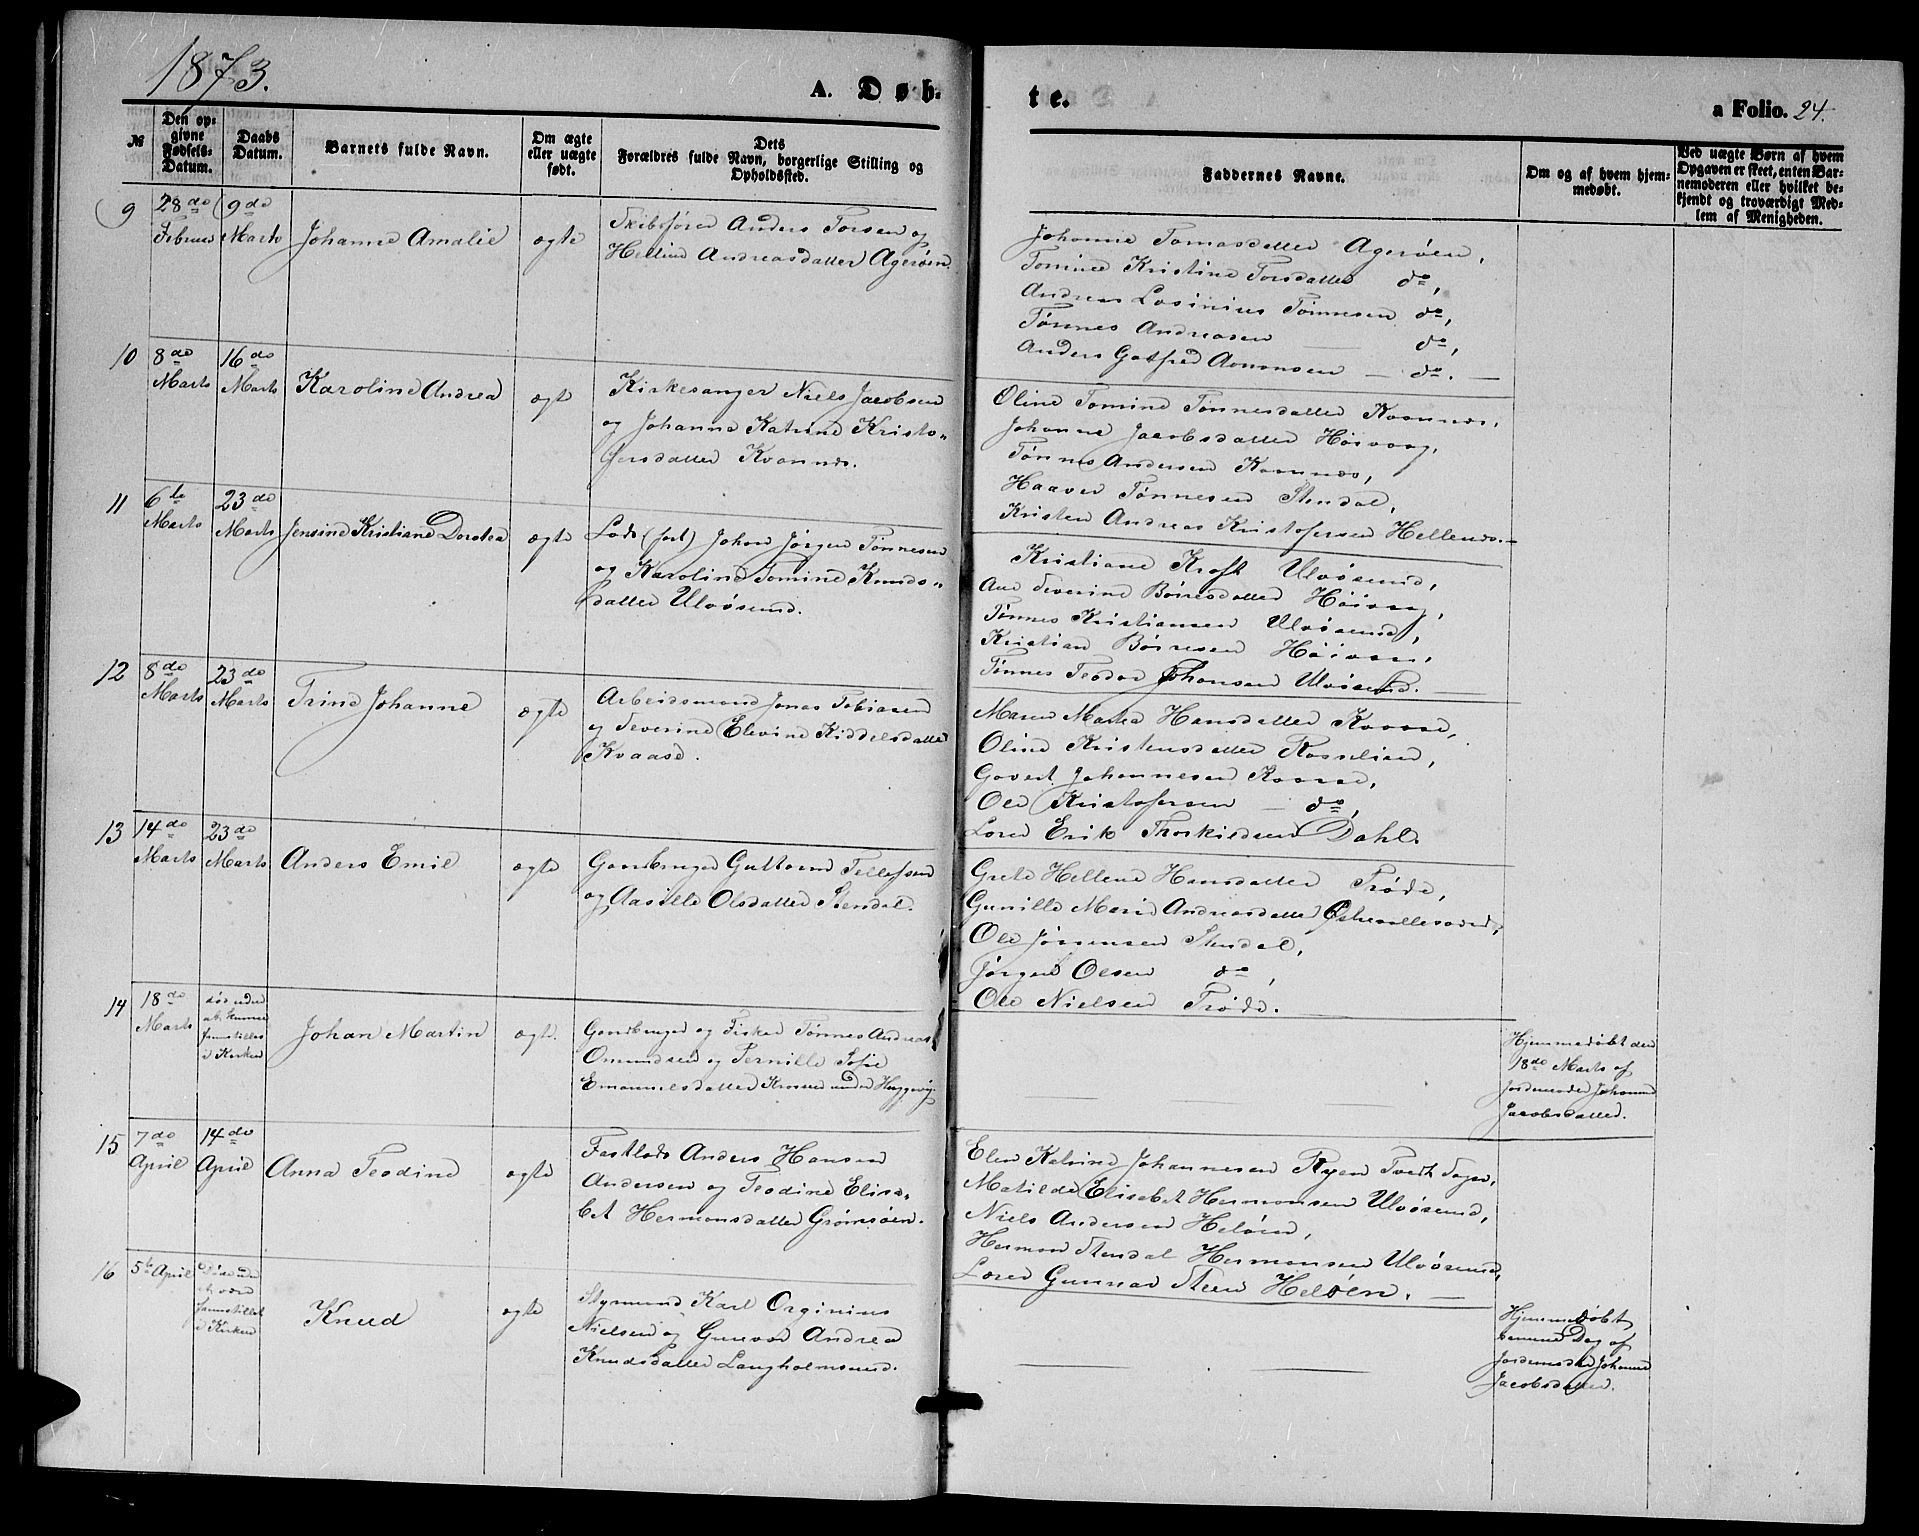 1873.
A. Døb-
te.
a Folio. 24.
№
Den op-
givne
Fødsels-
Datum.
Daabs
Datum.
Barnets fulde Navn.
Om ægte
eller uægte
født.
Dets
Forældres fulde Navn, borgerlige Stilling og
Opholdssted.
Faddernes Navne.
Om og af hvem hjem-
medøbt.
Ved uægte Børn af hvem
Opgaven er skeet, enten Bar-
nemoderen eller hvilket be-
kjendt og troværdigt Med-
lem af Menigheden.
9
28de
Februar
9de
Marts
Johanne Amalie
ægte
Skibsfører Anders Torsen og
Helline Andreasdatter Agerøen.
Johanne Tomasdatter Agerøen,
Tomine Kristine Torsdatter do,
Andreas Tønnesen do,
Tønnes Andreasen do,
Anders Gotfred do.
10
8de
Marts
16de
Marts
Karoline Andrea
ægte
Kirkesanger Niels Jacobsen
og Johanne Katrine Kristo-
fersdatter Kvannes.
Oline Tomine Tønnesdatter Kvannes,
Johanne Jacobsdatter Høivaag,
Tønnes Andersen Kvannes,
Haaver Tønnesen Stendal,
Kristen Andreas Kristofersen Hellenes.
11
6te
Marts
23de
Marts
Jensine Kristiane Dorotea
ægte
Lods (fast) Johan Jørgen Tønnesen
og Karoline Tomine Knuds-
datter Ulvøsund.
Kristiane Kroft Ulvøsund,
Ane Severine Børresdatter Høivaag,
Tønnes Kristiansen Ulvøsund,
Kristian Børresen Høivaag,
Tønnes Teodor Johansen Ulvøsund.
12
8de
Marts
23de
Marts
Trine Johanne
ægte
Arbeidsmand Jonas Tobiasen
og Severine Elevine Kiddelsdatter
Kvaase.
Maren Martea Hansdatter Kvaase,
Oline Kristensdatter Rosselien,
Govert Johannesen Kvaase,
Ole Kristofersen do,
Lærer Erik Thorkildsen Dahl.
13
14de
Marts
23de
Marts
Anders Emil
ægte
Gaardbruger Guttorm Tellefsen
og Aasille Olsdatter Stendal.
Grete Hellene Hansdatter Trøde,
Gunille Marie Andreasdatter
Ole Jørgensen Stendal,
Jørgen Olsen do,
Ole Nielsen Trøde.
14
18de
Marts
død uden
at kunne
fremstilles
i Kirken
Johan Martin
ægte.
Gaardbruger og Fisker Tønnes Andreas
Omundsen og Pernille Sofie
Emanuelsdatter under
Hjemmedøbt den
18de Marts af
Jordemoder Johanne
Jacobsdatter.
15
7de
April
14de
April
Anna Teodine
ægte
Fastlods Anders Hansen
Andersen og Teodine Elisa-
bet Hermansdatter Grømsøen.
Elen Katrine Johannesen Ryen Tveit Sogn,
Matilde Elisabet Hermansen Ulvøsund,
Niels Andersen Heløen,
Herman Stendal Hermansen Ulvøsund,
Lærer Gunnar Steen Heløen.
16
5te April
Død uden
at være
fremstillet
i Kirken
Knud
ægte
Styrmand Karl Orginius
Nielsen og Gunvor Andrea
Knudsdatter Langholmsund.
Hjemmedøbt
samme Dag af
Jordemoder Johanne
Jacobsdatter.